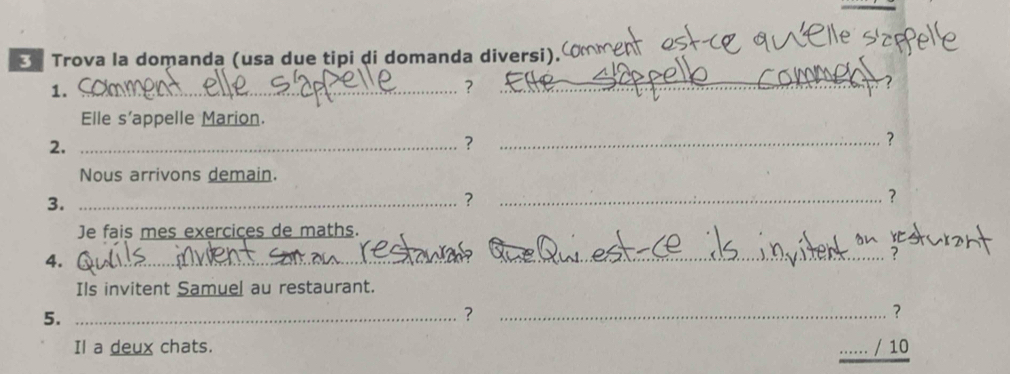 3 Trova la domanda (usa due tipi di domanda diversi). Comment est-ce qu'elle s'appelle
1. Comment elle s'appelle ? Elle s'appelle comment ?
Elle s'appelle Marion.
2. ? ?
Nous arrivons demain.
3. ? ?
Je fais mes exercices de maths.
4. Qu'ils invitent au restaurant ? Que Qui est-ce ils invitent au restaurant ?
Ils invitent Samuel au restaurant.
5. ? ?
Il a deux chats.
...... / 10